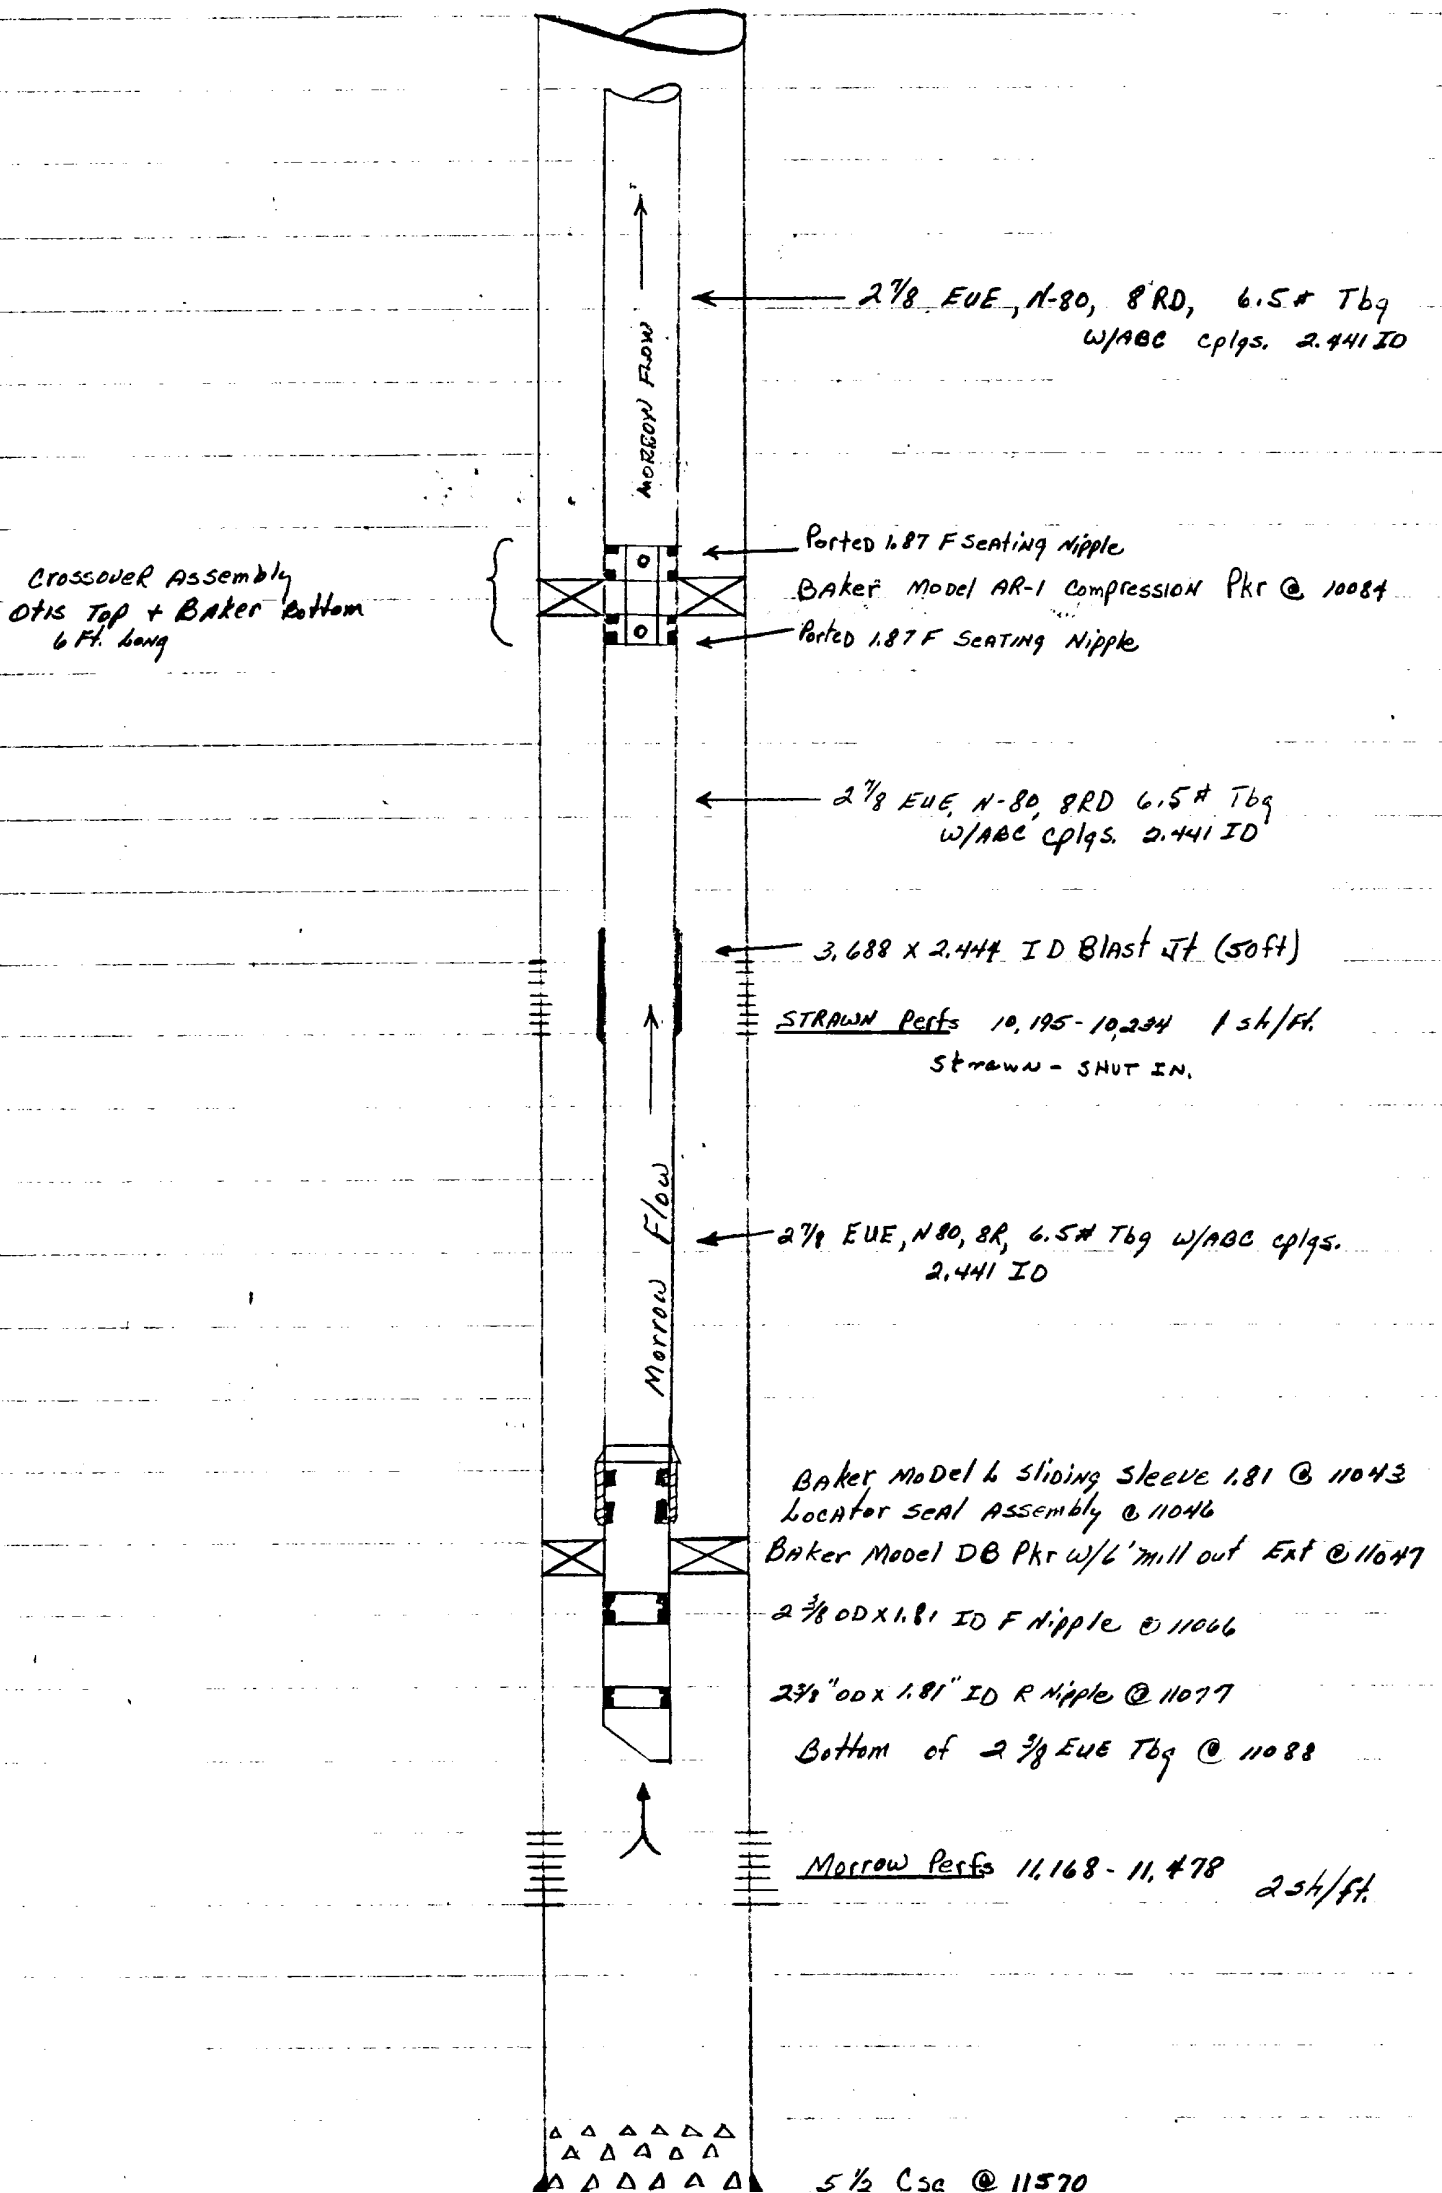 2 7/8 EUE, N-80, 8 RD, 6.5# Tbg
W/ABC cplgs. 2.441 ID
MORROW FLOW
Ported 1.87 F Seating Nipple
Crossover Assembly
Otis Top + Baker Bottom
6 Ft. Long
Baker Model AR-1 Compression Pkr @ 10084
Ported 1.87 F Seating Nipple
2 7/8 EUE, N-80, 8RD 6.5# Tbg
W/ABC cplgs. 2.441 ID
3.688 X 2.444 ID Blast Jt (50ft)
STRAWN Perfs 10,195-10,234 1 sh/Ft.
Strawn - SHUT IN.
Morrow Flow
2 7/8 EUE, N80, 8R, 6.5# Tbg W/ABC cplgs.
2.441 ID
Baker Model L Sliding Sleeve 1.81 @ 11043
Locator Seal Assembly @ 11046
Baker Model DB Pkr W/6' mill out Ext @ 11047
2 3/8 OD X 1.81 ID F Nipple @ 11066
2 3/8" OD X 1.81" ID R Nipple @ 11077
Bottom of 2 3/8 EUE Tbg @ 11088
Morrow Perfs 11,168-11,478 2 sh/ft.
5 1/2 Csg @ 11570